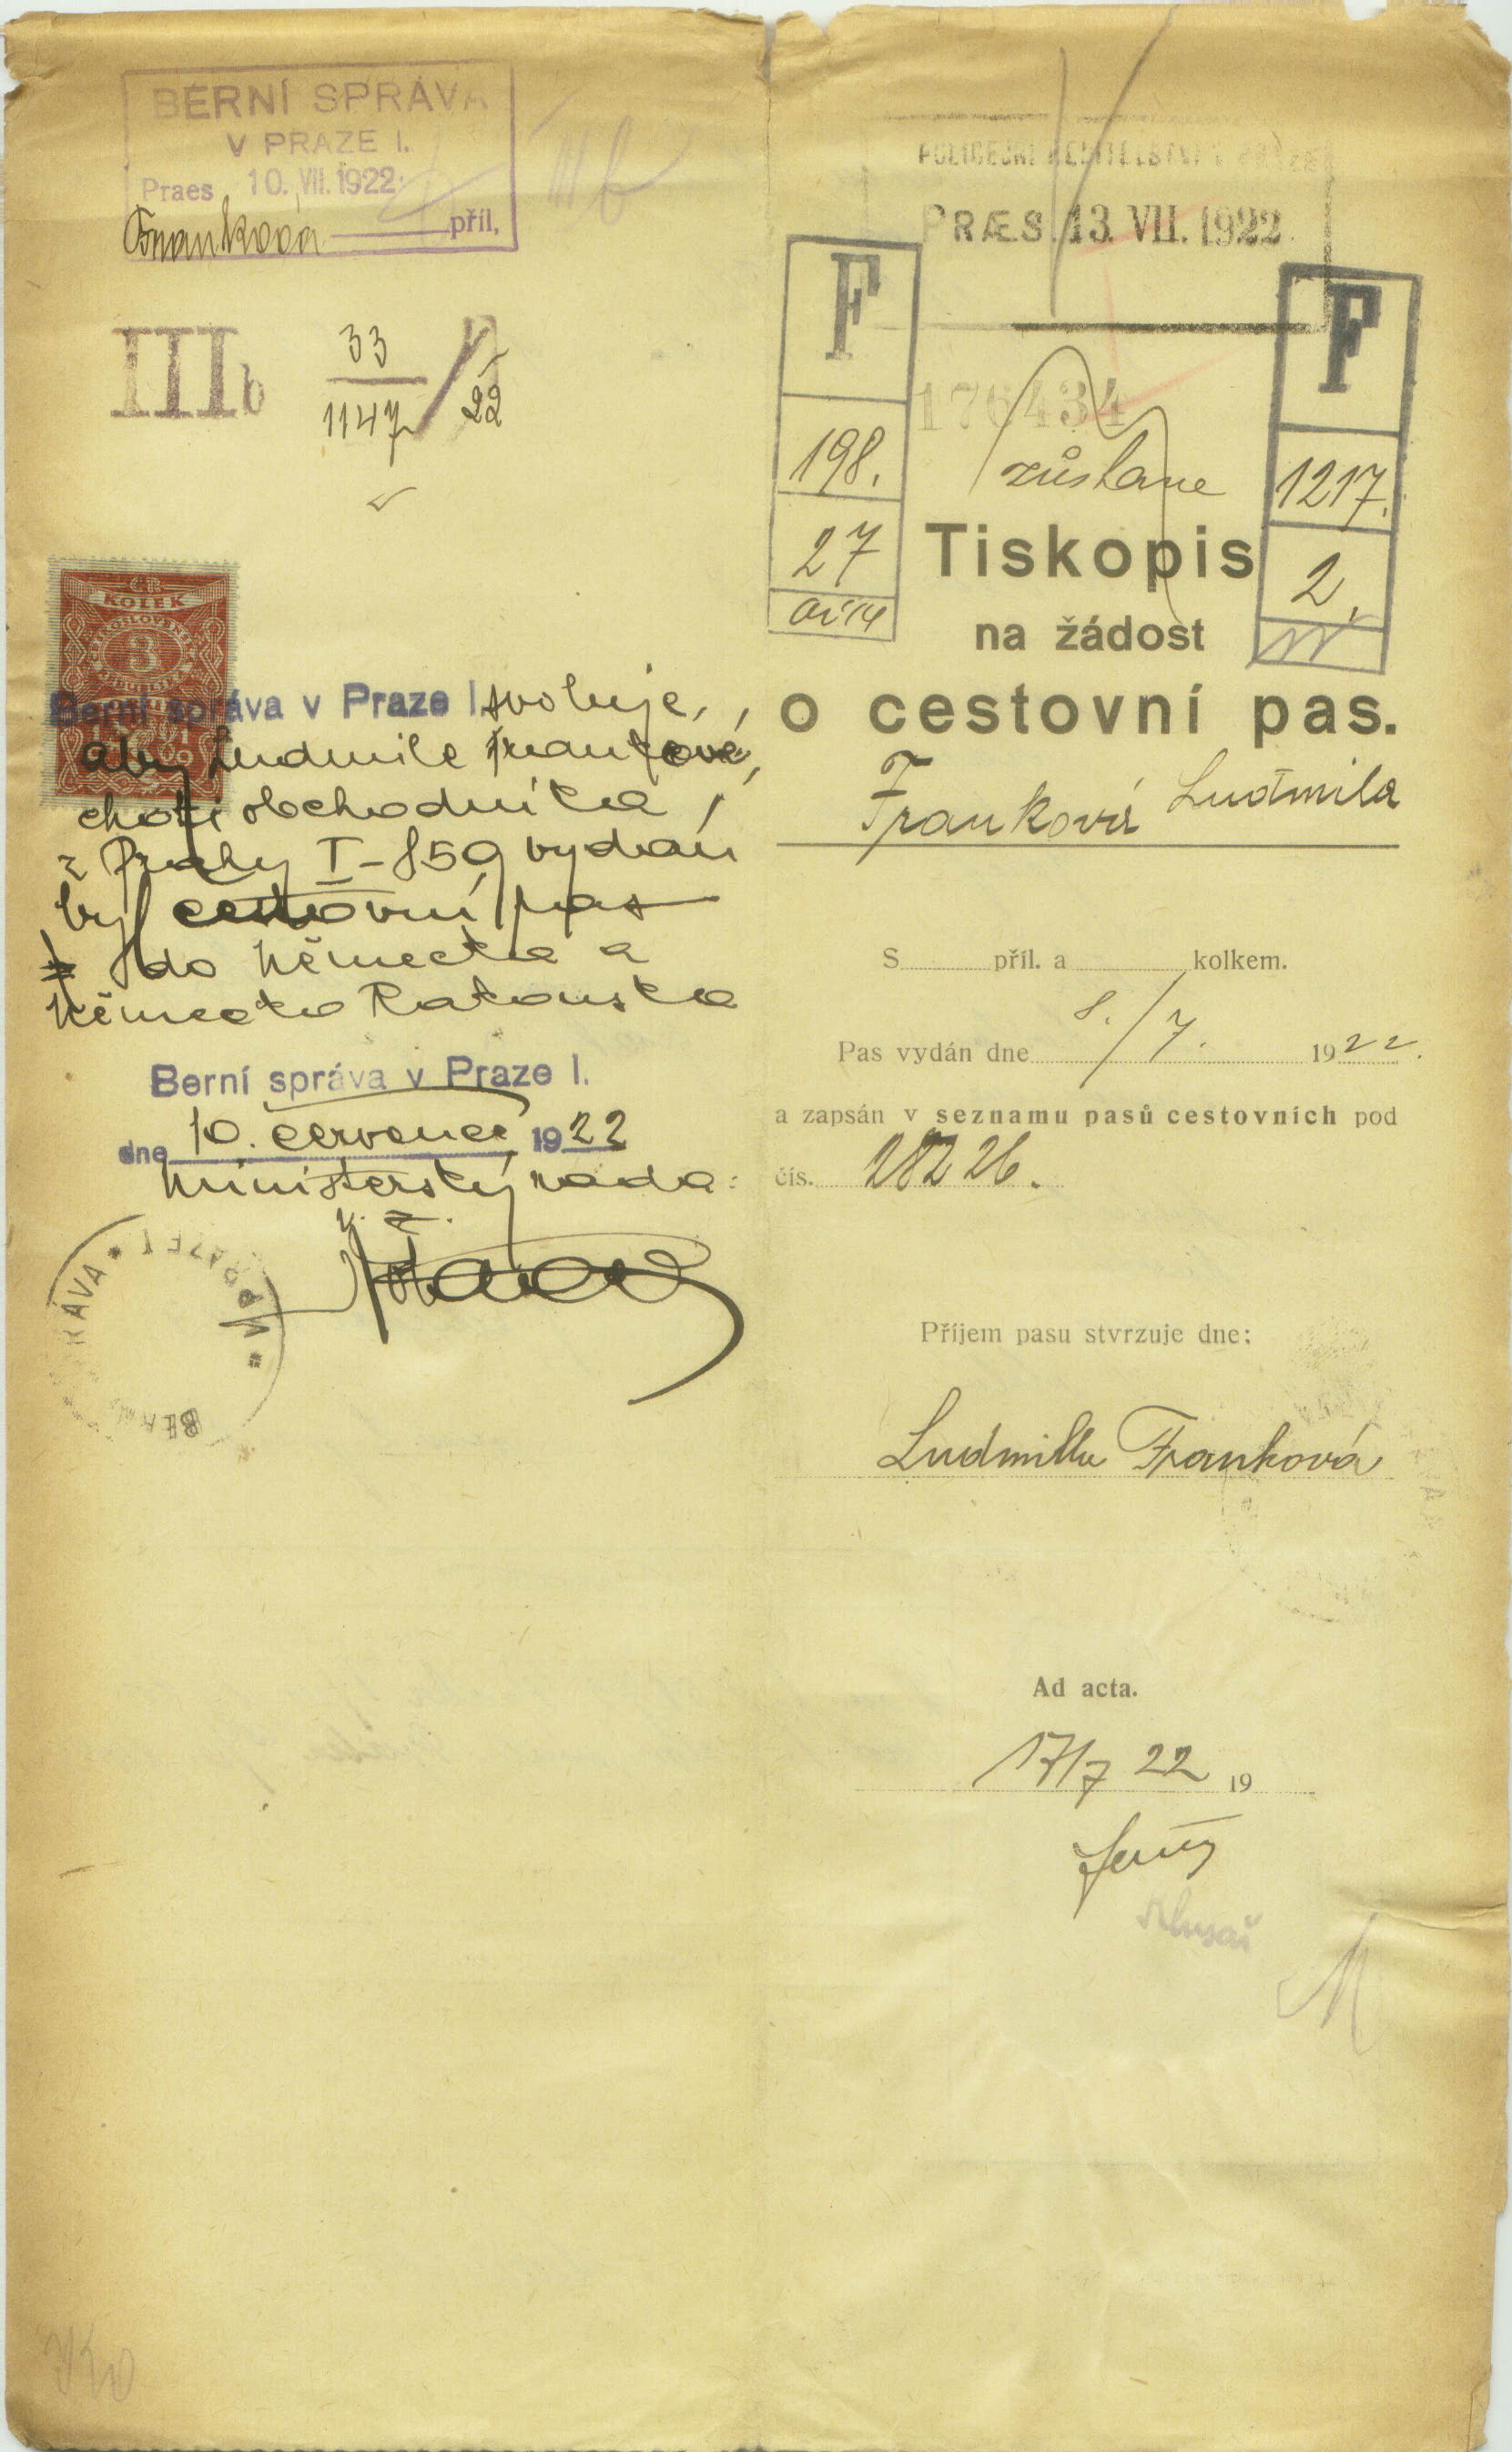 BERNÍ SPRÁVA
V PRAZE I.
Praes. 10. VII. 1922
Franková příl.
IIIb
33
1147 / 22
KOLEK
3
Berní správa v Praze I. svoluje,
aby Ludmile Frankové,
choti obchodníka
z Prahy I-859 vydán
byl cestovní pas
do Německa a
Německo Rakouska
Berní správa v Praze I.
dne 10. července 1922
Ministerský rada:
v. z.
BERNÍ SPRÁVA * V PRAZE I *
POLICEJNÍ ŘEDITELSTVÍ V PRAZE
PRÆS. 13. VII. 1922
176434
zůstane
F
198.
27
F
1217.
2.
Tiskopis
na žádost
o cestovní pas.
Franková Ludmila
S příl. a kolkem.
Pas vydán dne 8./7. 1922.
a zapsán v seznamu pasů cestovních pod
čís. 28226.
Příjem pasu stvrzuje dne:
Ludmilla Franková
Ad acta.
17/7 22 19